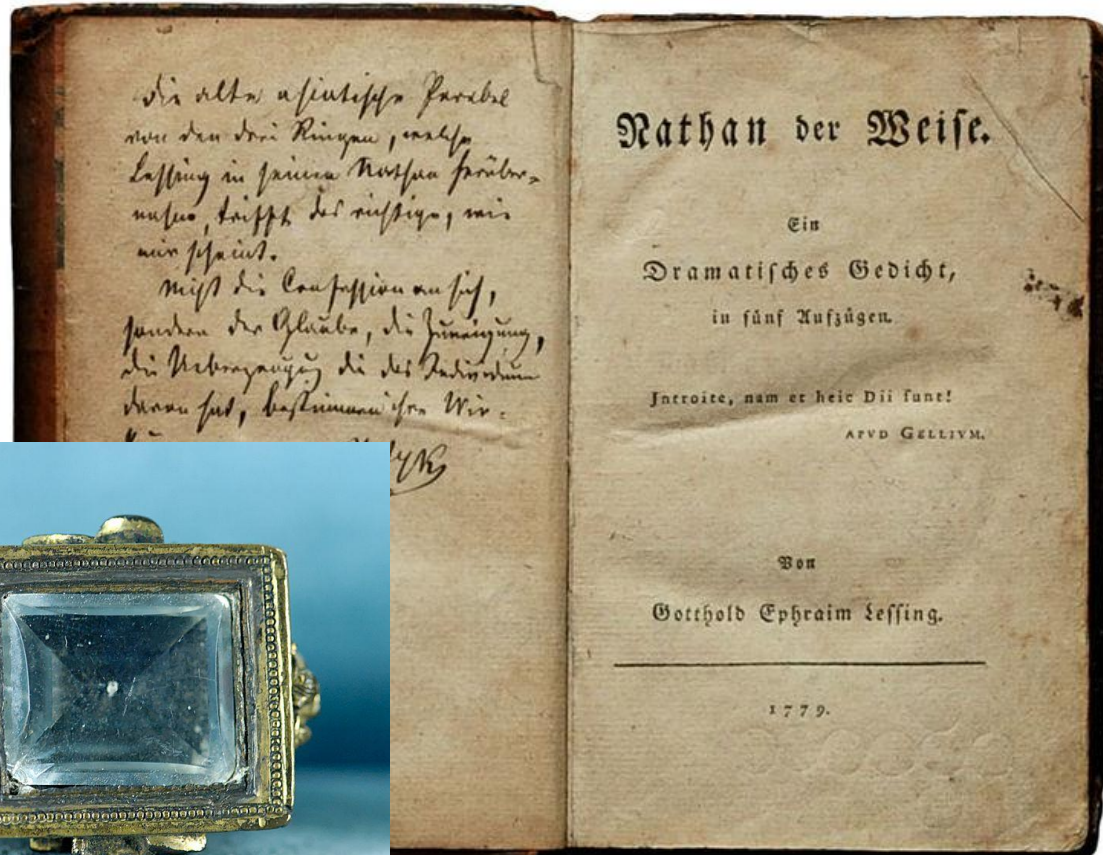 die alte asiatische Parabel
von den drei Ringen, welche
Lessing in seinen Nathan herüber-
nahm, trifft das richtige, wie
mir scheint.
Nicht die Confession an sich,
sondern der Glaube, die Zuneigung,
die Ueberzeugug die das Individuum
daran hat, bestimmen ihre Wir-
Nathan der Weiſe.
Ein
Dramatiſches Gedicht,
in fünf Aufzügen.
Introite, nam et heic Dii ſunt!
APVD GELLIVM.
Von
Gotthold Ephraim Leſſing.
1779.